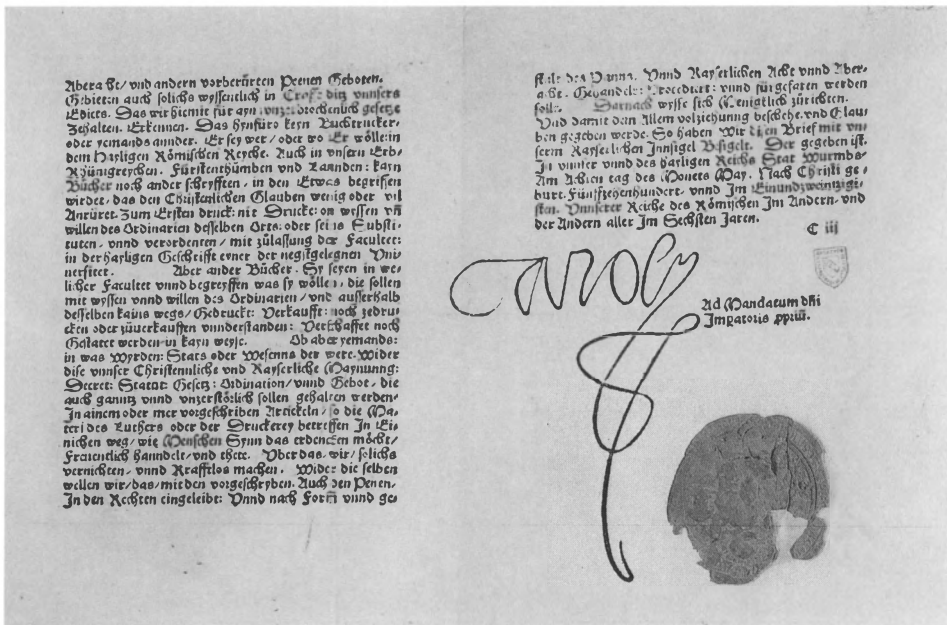 Abera ht/ vnd andern vorberürten Peenen Geboten.
Gebieten auch solichs wyssentlich in Crafft ditz vnnsers
Edicts. Das wir hiemit für ayn vnzerbrochenlich gesetze
Zehalten. Erkennen. Das hynfüro keyn Buchtrucker.
oder yemands annder. Er sey wer/ oder wo Er wölle: in
dem Hayligen Römischen Reyche. Auch in vnsern Erb-
Khünigreychen. Fürstenthümben vnd Lannden: kayn
Bücher noch ander schrifften, in den Etwas begriffen
wirdet, das den Christenlichen Glauben wenig oder vil
Anrüret. Zum Ersten druck: nit Drucke: on wyssen vñ
willen des Ordinarien desselben Orts: oder seins Substi-
tuten, vnnd verordenten/ mit zůlassung der Facultet:
in der hayligen Geschrifft eyner der negstgelegnen Vni-
uersitet. Aber ander Bücher. Sy seyen in we-
licher Facultet vnnd begreyffen was sy wölle, die sollen
mit wyssen vnnd willen des Ordinarien/ vnd ausserhalb
desselben kains wegs/ Gedruckt: Verkaufft: noch zedru-
cken oder zůuerkauffen vnnderstanden: Verschaffet noch
Gestatet werden in kayn weyse. Ob aber yemands:
in was Wyrden: Stats oder Wesenns der were. Wider
dise vnnser Christennliche vnd Kayserliche Maynunng:
Decret: Statut: Gesetz: Ordination/ vnnd Gebot, die
auch ganntz vnnd vnzerstörlich sollen gehalten werden.
In ainem oder mer vorgeschriben Artickeln/ so die Ma-
teri des Luthers oder der Druckerey betreffen In Ei-
nichen weg/ wie Menschen Synn das erdencken möcht/
Freuenlich hanndelt/ vnd thete. Vber das, wir/ solichs
vernichten, vnnd Krafftlos machen. Wider die selben
wellen wir/ das/ mit den vorgeschryben. Auch den Penen,
In den Rechten eingeleibt: Vnnd nach Form vnnd ge
stalt des Panns. Vnnd Kayserlichen Acht vnnd Aber-
acht. Gehandelt: Procedirt: vnnd fürgefaren werden
solle. Darnach wysse sich Menigklich zůrichten.
Vnd damit dem Allem volziehung beschehe. vnd Glau
ben gegeben werde. So haben Wir disen Brief mit vn
serm Kayserlichen Innsigel Besigelt. Der gegeben ist.
In vnnser vnnd des hayligen Reichs Stat Wurmbs.
Am Achten tag des Monets May. Nach Christi ge-
burt. Fünffzehenhundert. vnnd Im Einundzweintzigi-
sten. Vnnserer Reiche des Römischen Im Andern. vnd
der Andern aller Im Sechsten Jaren.
C iij
Carolus
Ad Mandatum dñi
Imperatoris ppriũ.